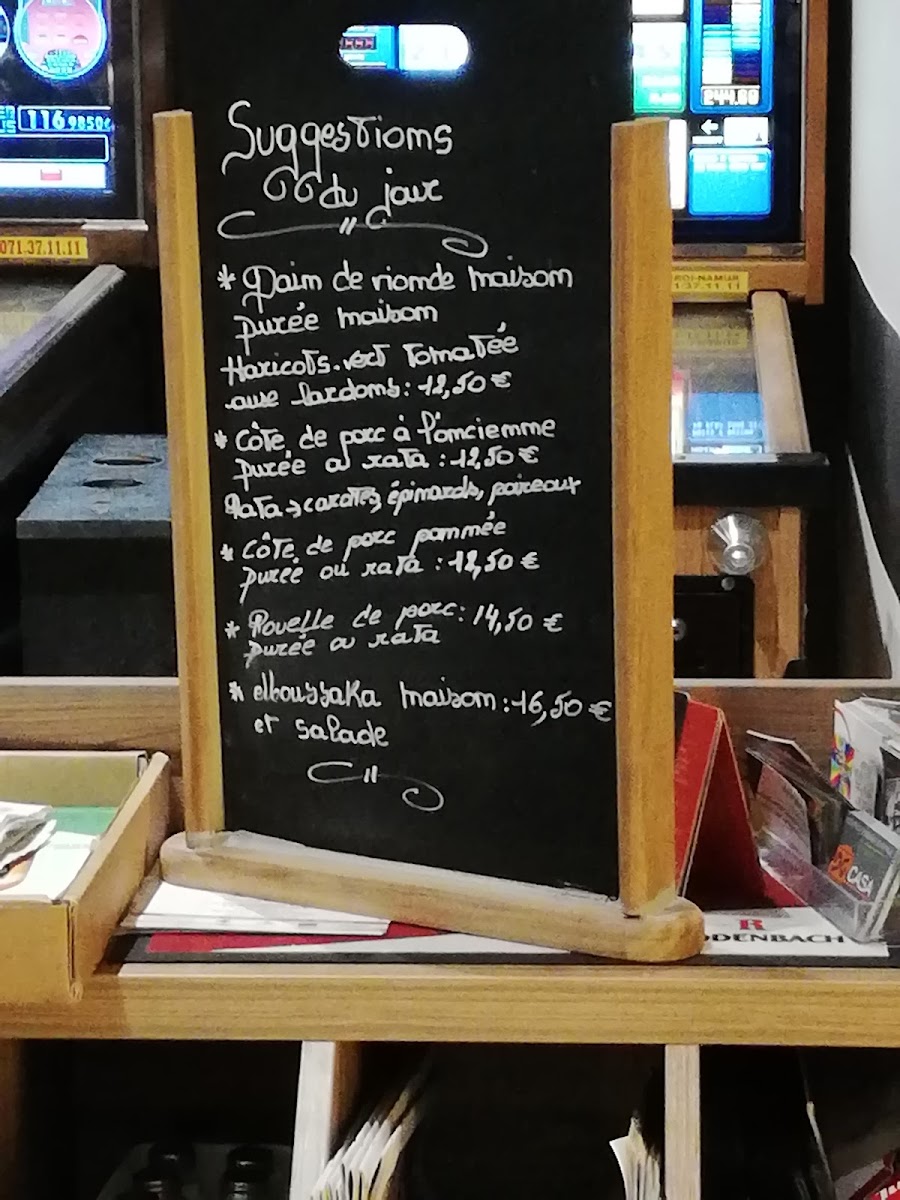 116 9850€
244.60
071.37.11.11
ROI-NAMUR
1.37.11.11
Suggestions
du jour
* Pain de viande maison
purée maison
Haricots-vert tomatée
aux lardons : 12,50 €
* Côte de porc à l'ancienne
purée ou rata : 12,50 €
Rata → carottes, épinards, poireaux
* Côte de porc pommée
purée ou rata : 12,50 €
* Rouelle de porc : 14,50 €
purée ou rata
* Moussaka maison : 16,50 €
et salade
CASA
R
ODENBACH